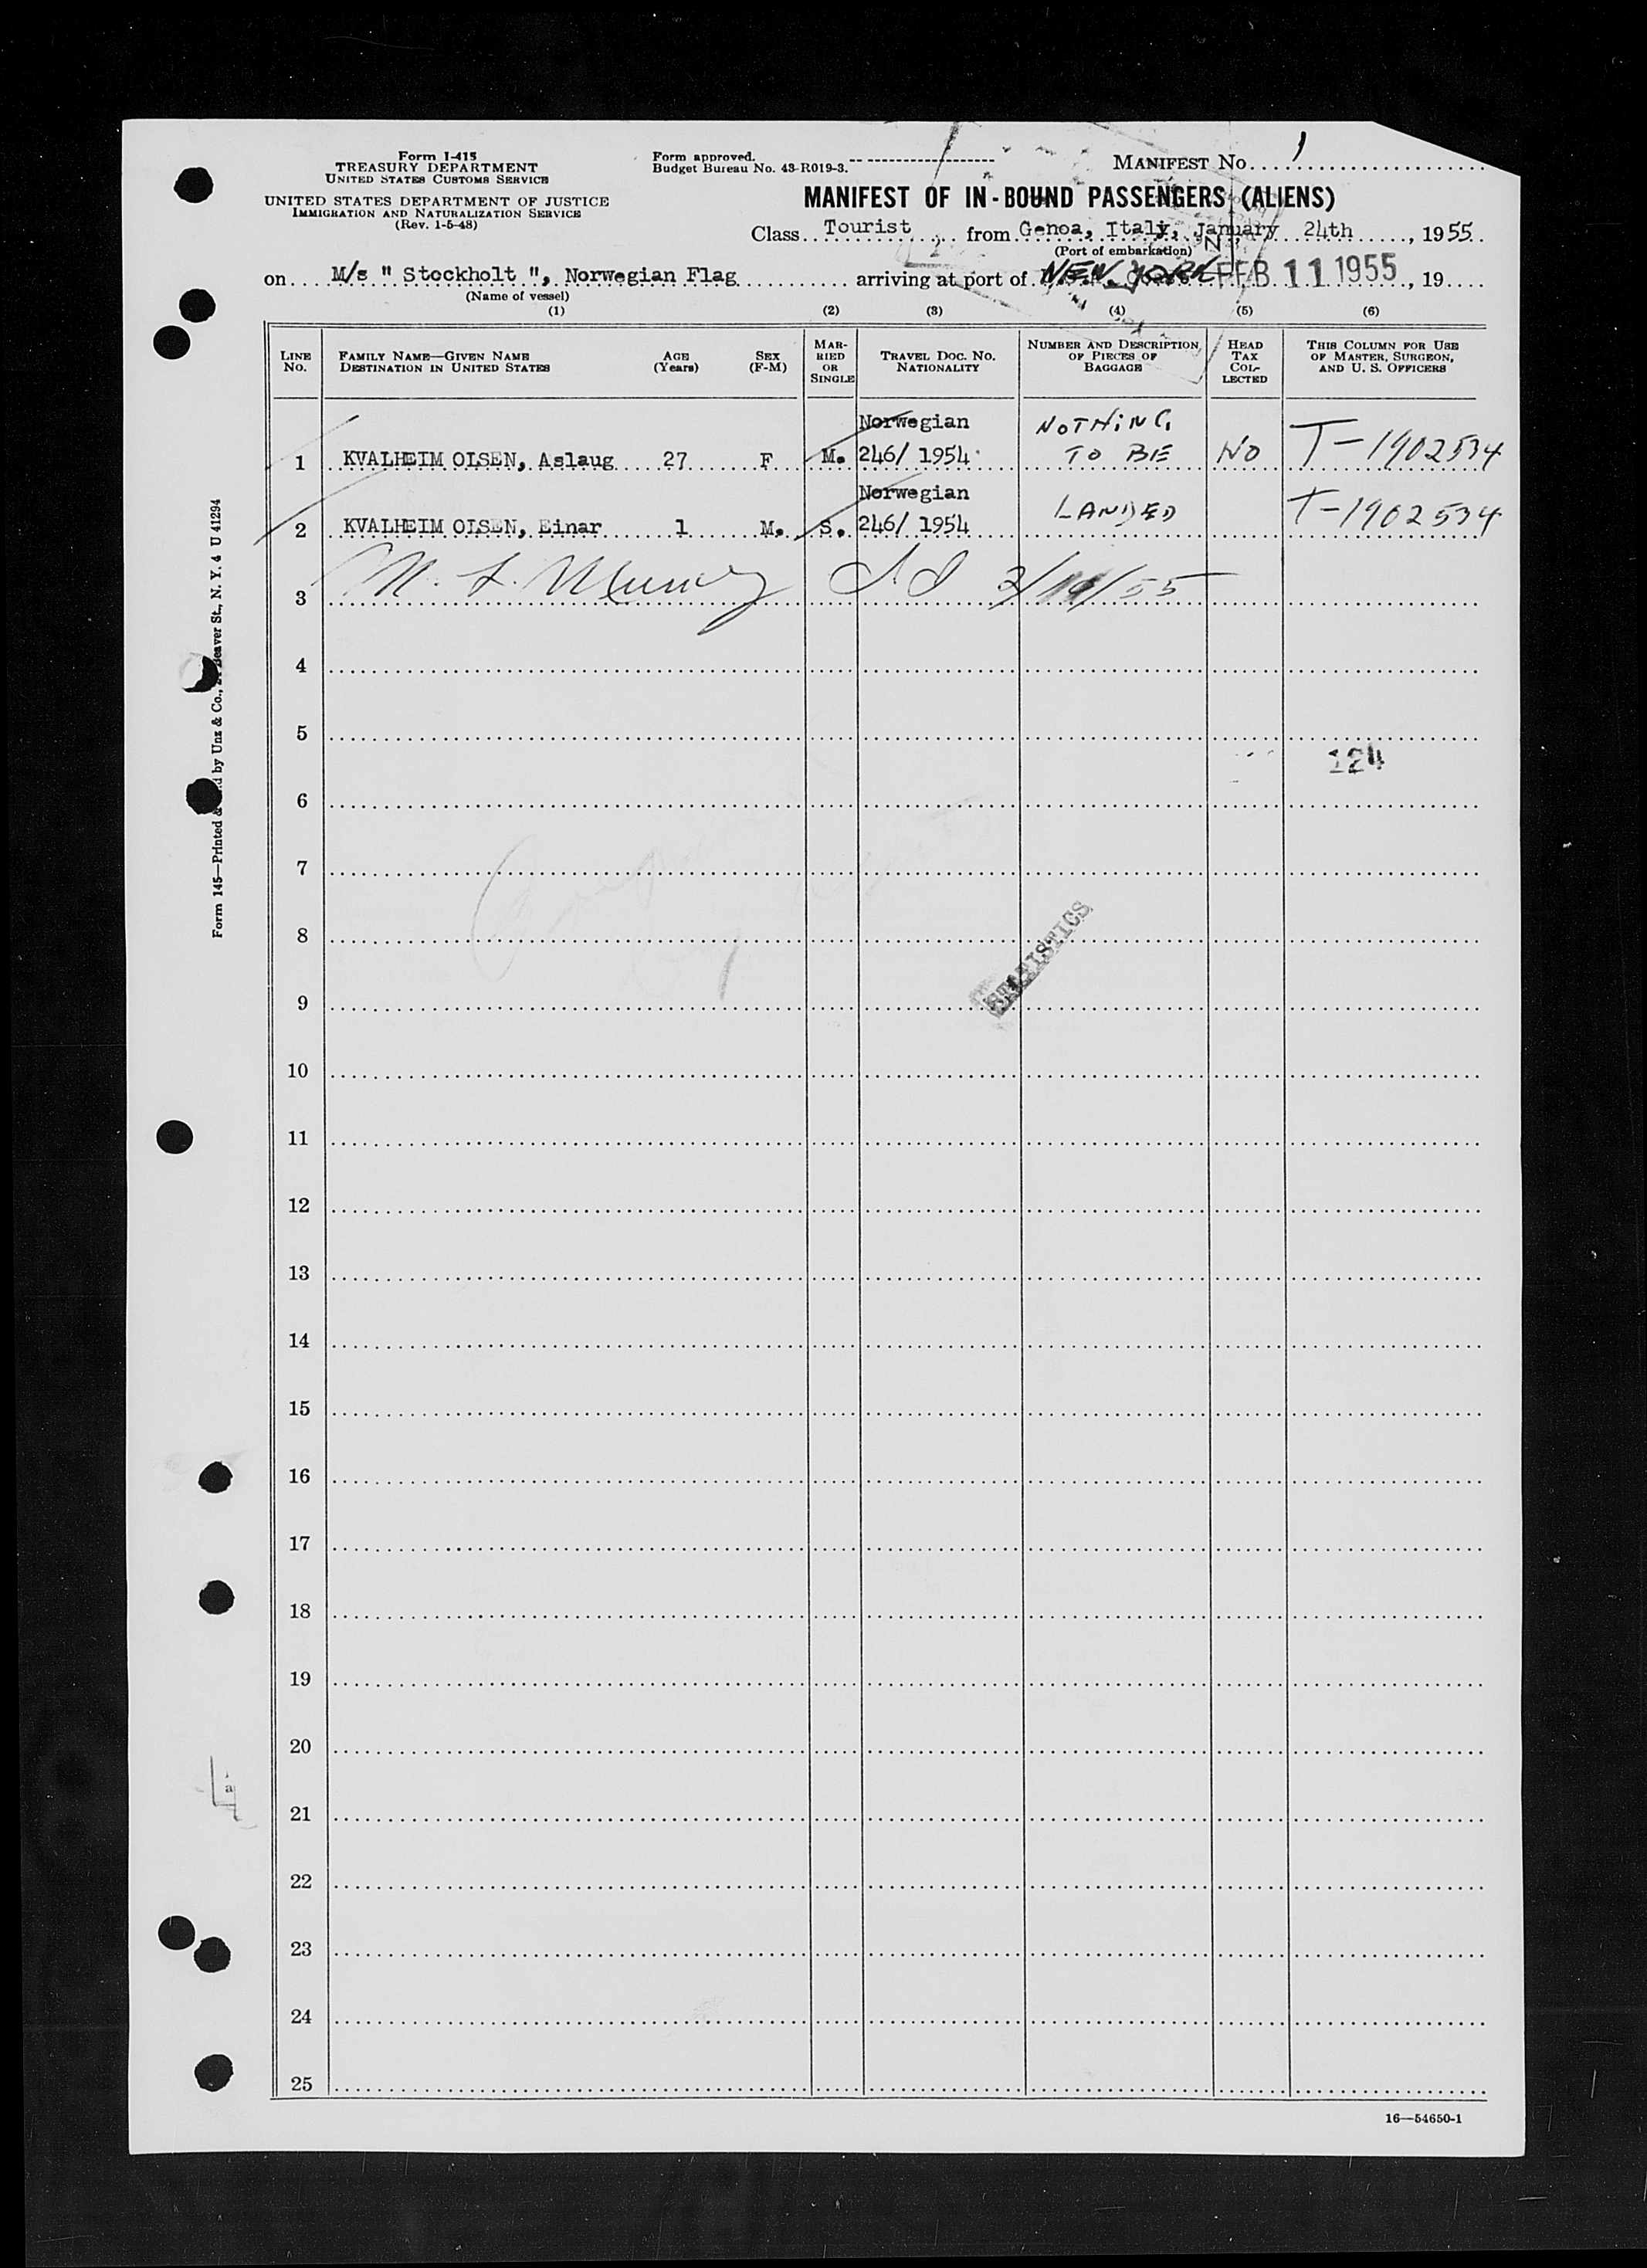 Form I-415
TREASURY DEPARTMENT
UNITED STATES CUSTOMS SERVICE
UNITED STATES DEPARTMENT OF JUSTICE
IMMIGRATION AND NATURALIZATION SERVICE
(Rev. 1-5-48)
Form approved.
Budget Bureau No. 43-R019-3.
MANIFEST No. 1
MANIFEST OF IN-BOUND PASSENGERS (ALIENS)
Class Tourist from Genoa, Italy, January 24th, 1955
(Port of embarkation)
on M/s " Stockholt ", Norwegian Flag arriving at port of NEW YORK FEB 11 1955, 19
(Name of vessel)
(1) (2) (3) (4) (5) (6)
LINE NO.
FAMILY NAME—GIVEN NAME
DESTINATION IN UNITED STATES
AGE (Years)
SEX (F-M)
MARRIED OR SINGLE
TRAVEL DOC. NO. NATIONALITY
NUMBER AND DESCRIPTION OF PIECES OF BAGGAGE
HEAD TAX COLLECTED
THIS COLUMN FOR USE OF MASTER, SURGEON, AND U. S. OFFICERS
Norwegian NOTHING
1 KVALHEIM OLSEN, Aslaug 27 F M. 246/ 1954 TO BE NO T-1902534
Norwegian LANDED
2 KVALHEIM OLSEN, Einar 1 M. S. 246/ 1954 T-1902534
3
4
5
124
6
7
8
STATISTICS
9
10
11
12
13
14
15
16
17
18
19
20
21
22
23
24
25
16—54650-1
Form 145—Printed by Unz & Co., Beaver St., N. Y. 4 U 41294